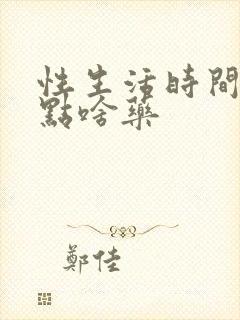 性生活時間
點啥藥
鄭佳